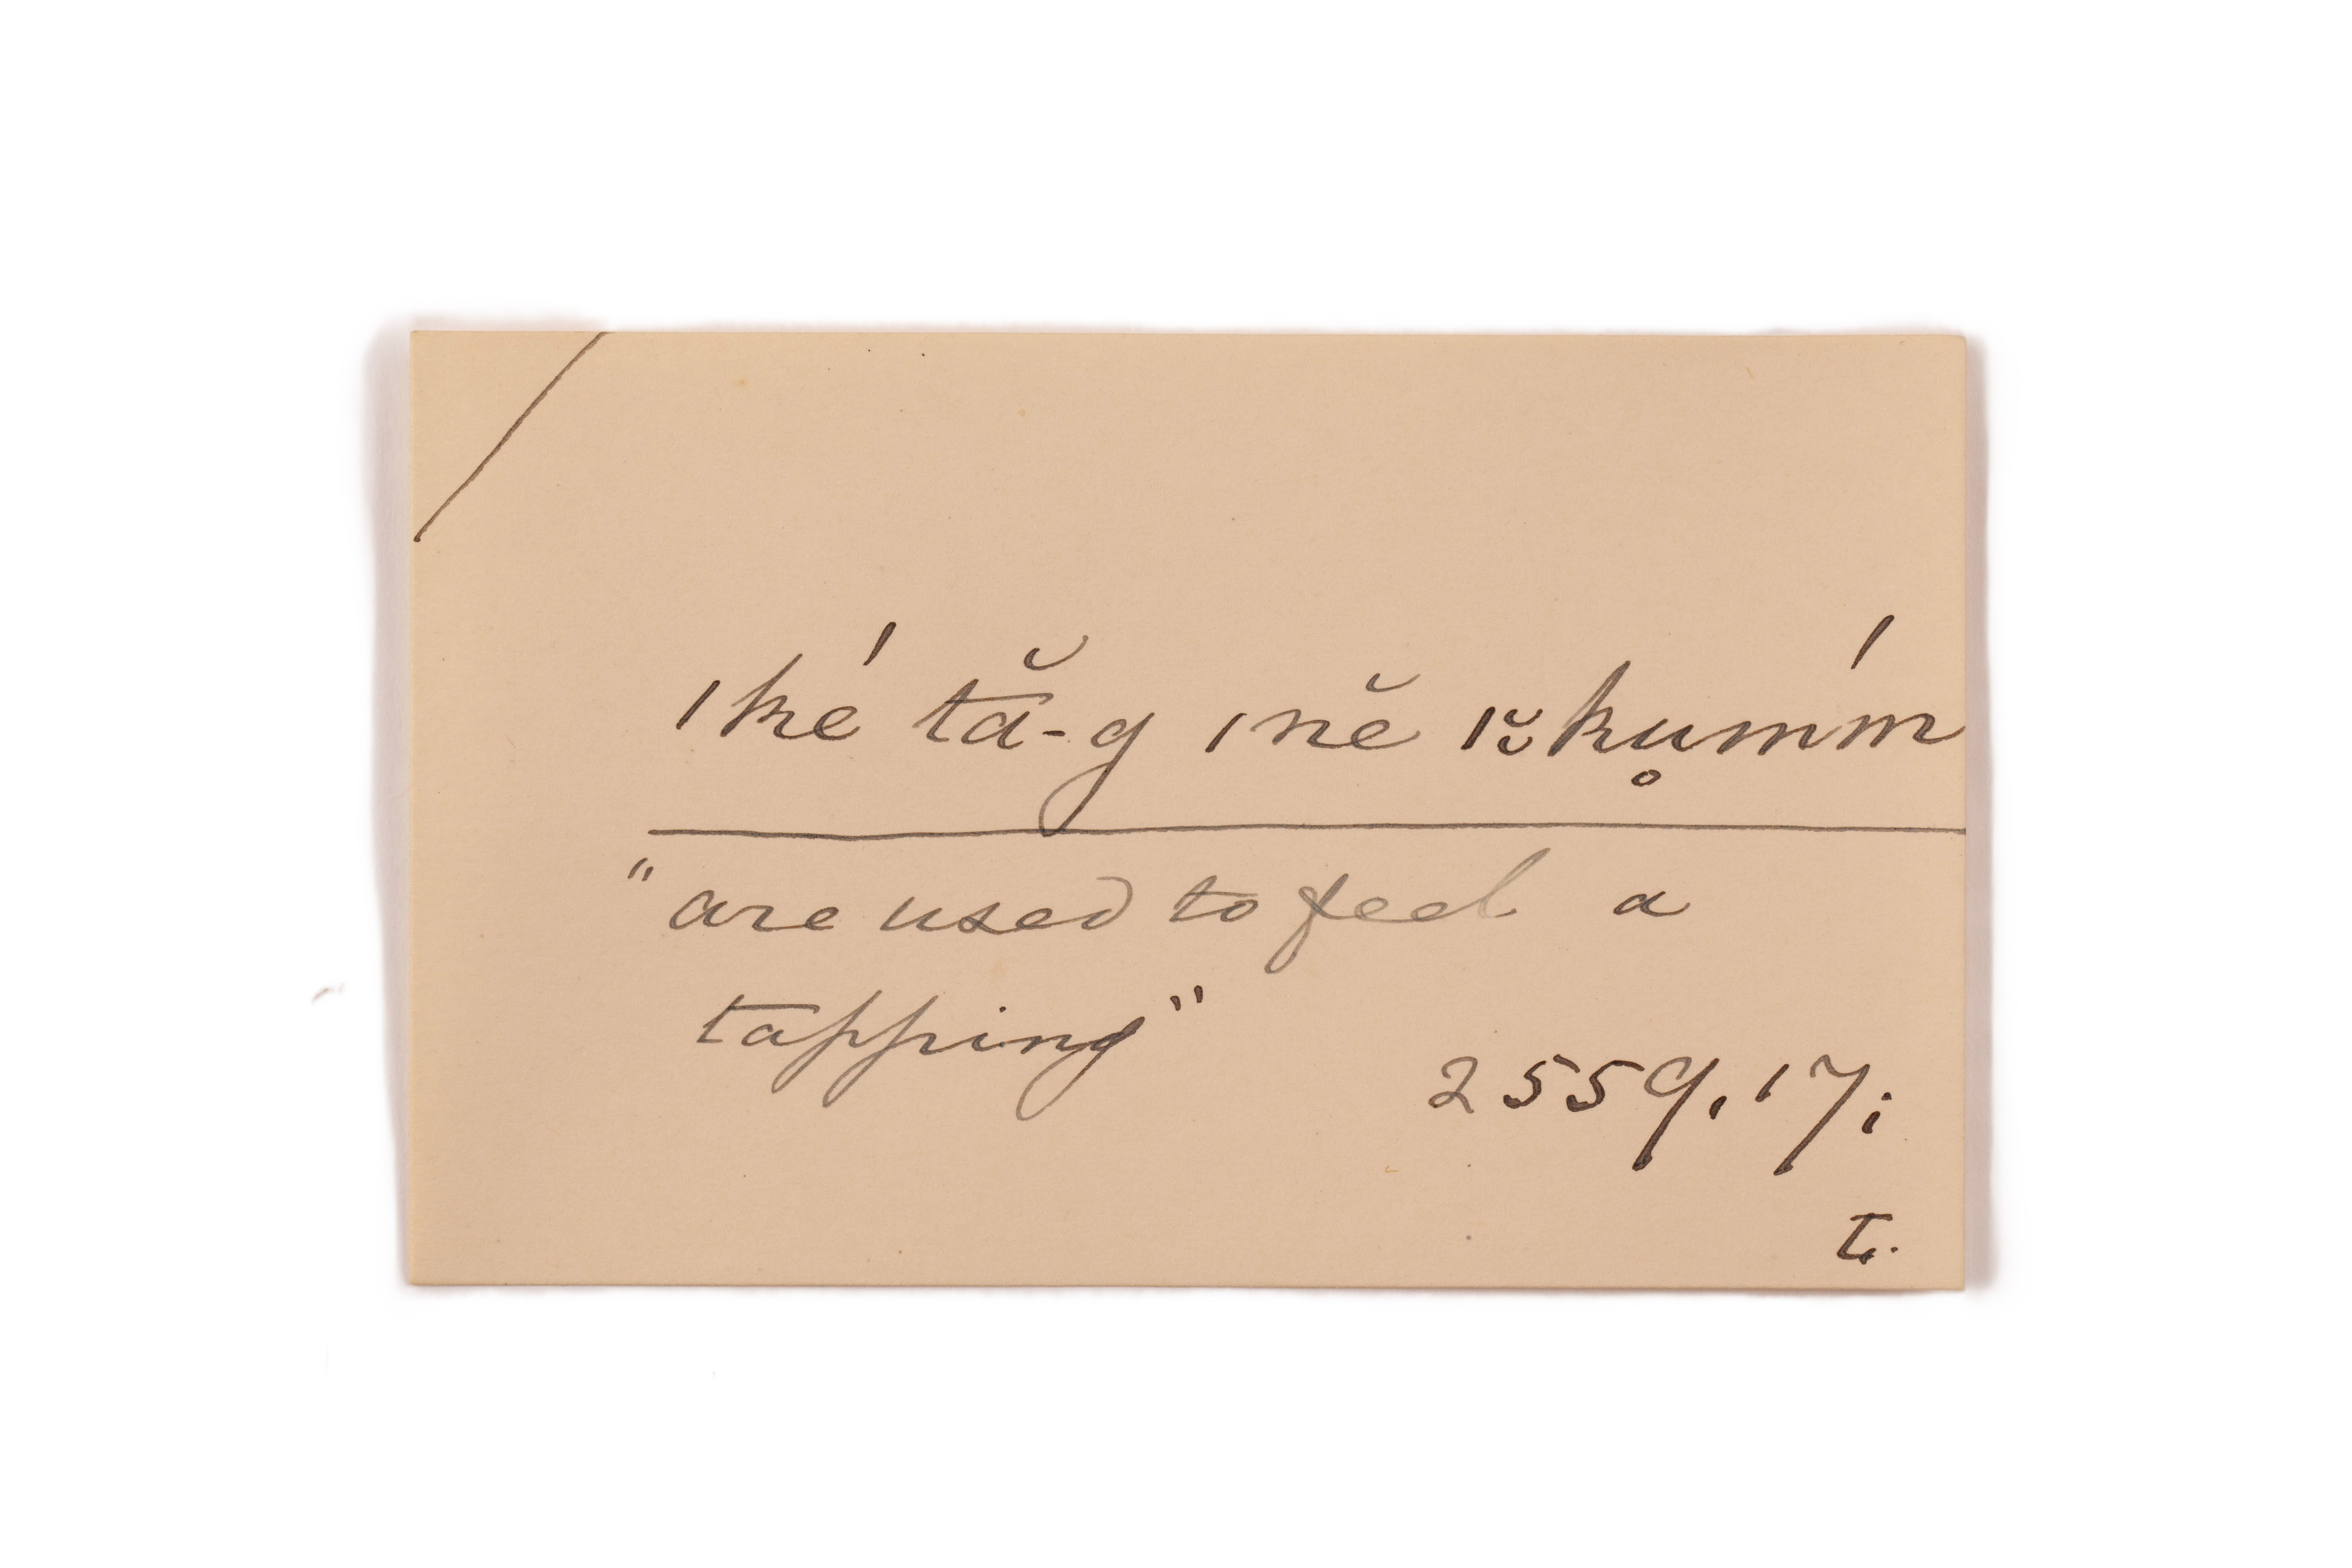 ıhé tă-g ınĕ ı̆ĭhu̥mḿ
"are used to feel a
tapping"
2559, 17;
t.